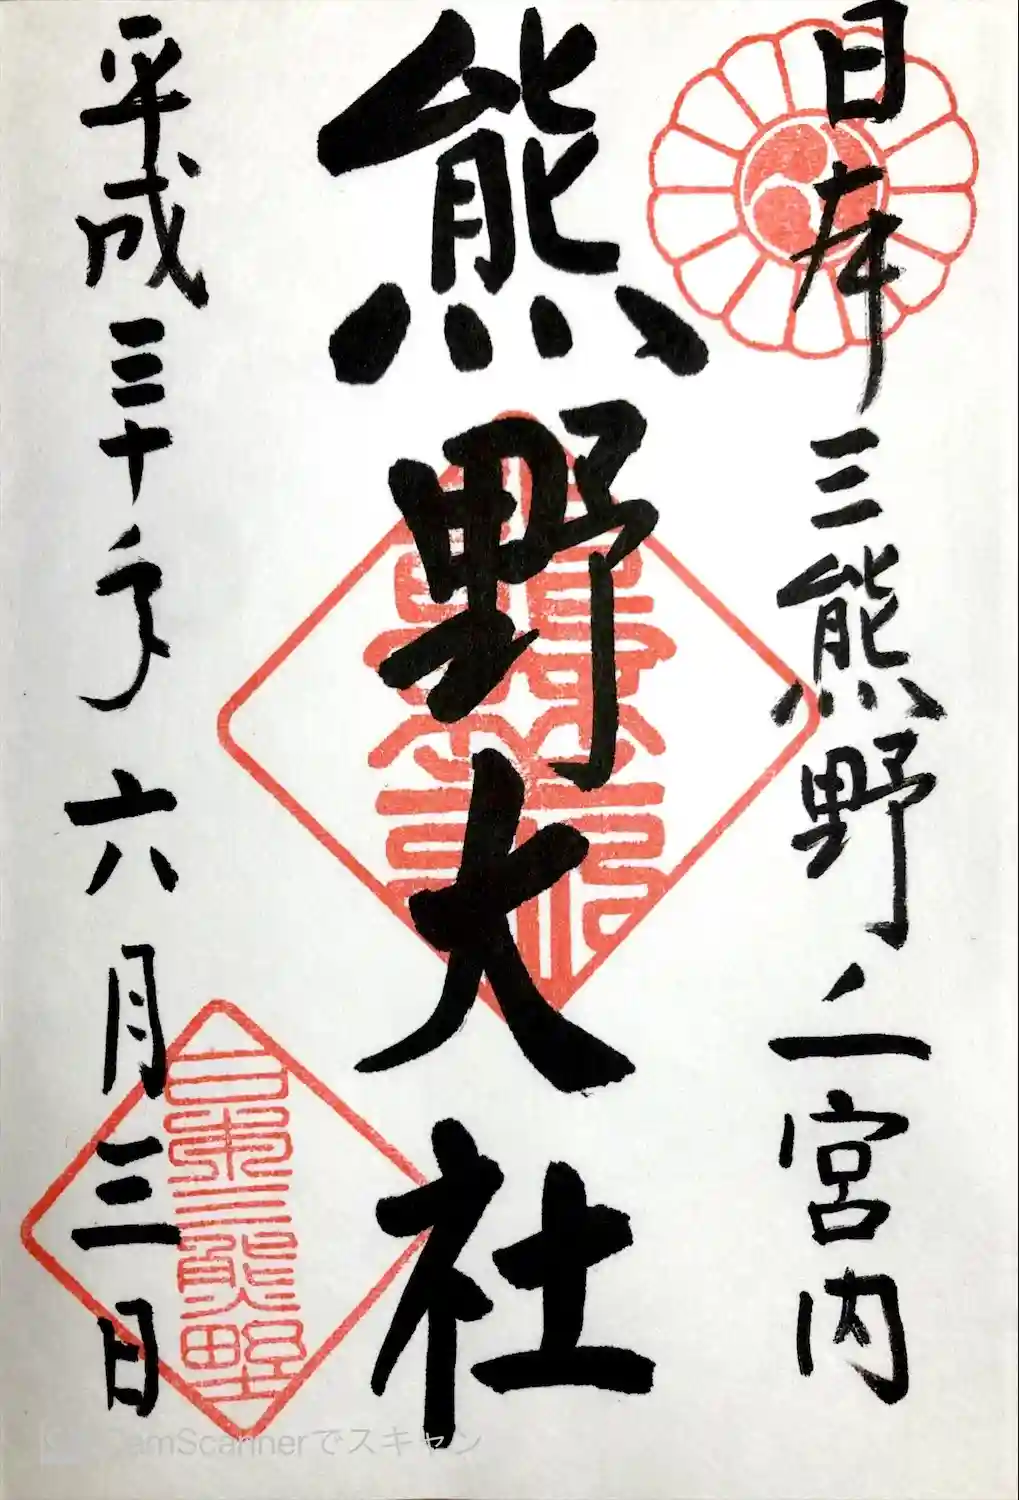 日本三熊野之宮内
熊野大社
平成三十年六月三日
日本三熊野
CamScannerでスキャン